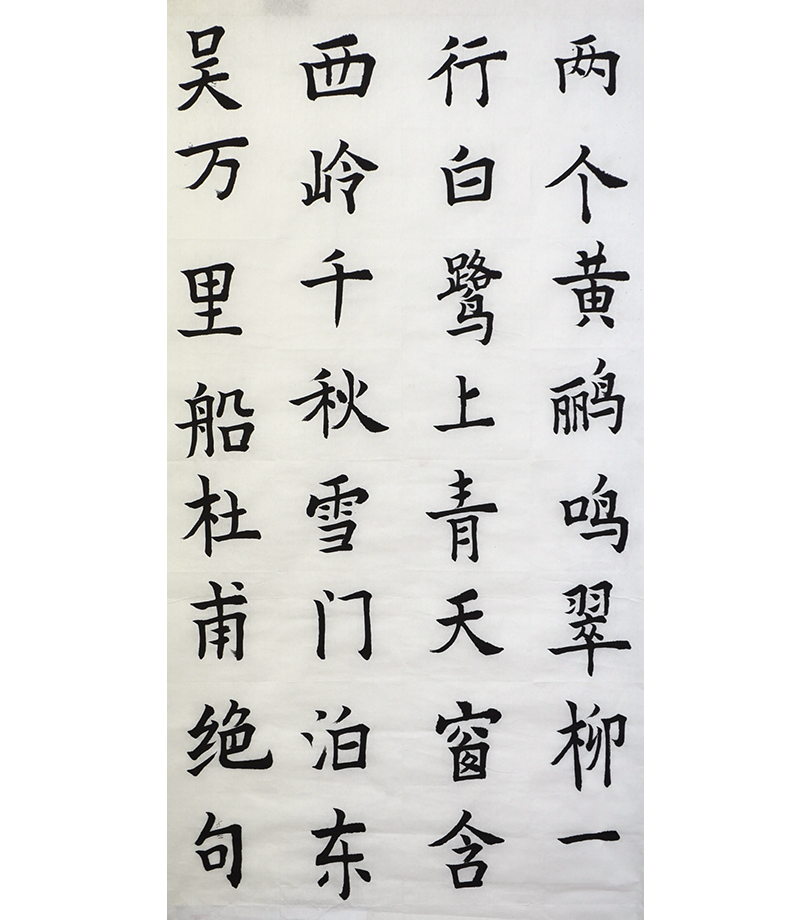 两个黄鹂鸣翠柳一
行白鹭上青天窗含
西岭千秋雪门泊东
吴万里船杜甫绝句